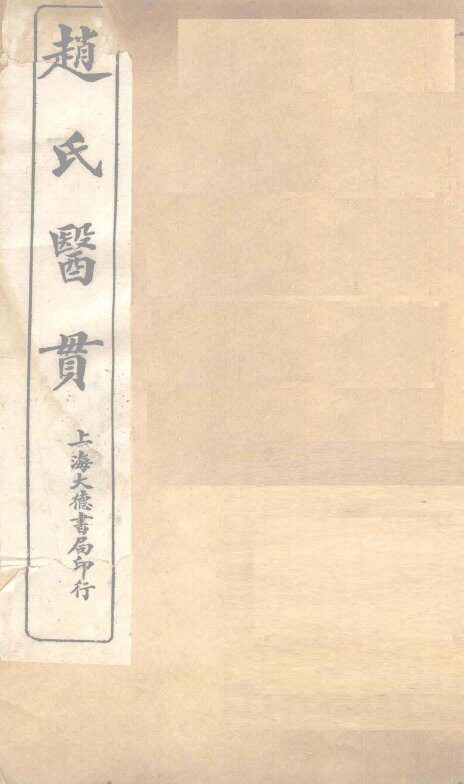 趙氏醫貫
上海大德書局印行